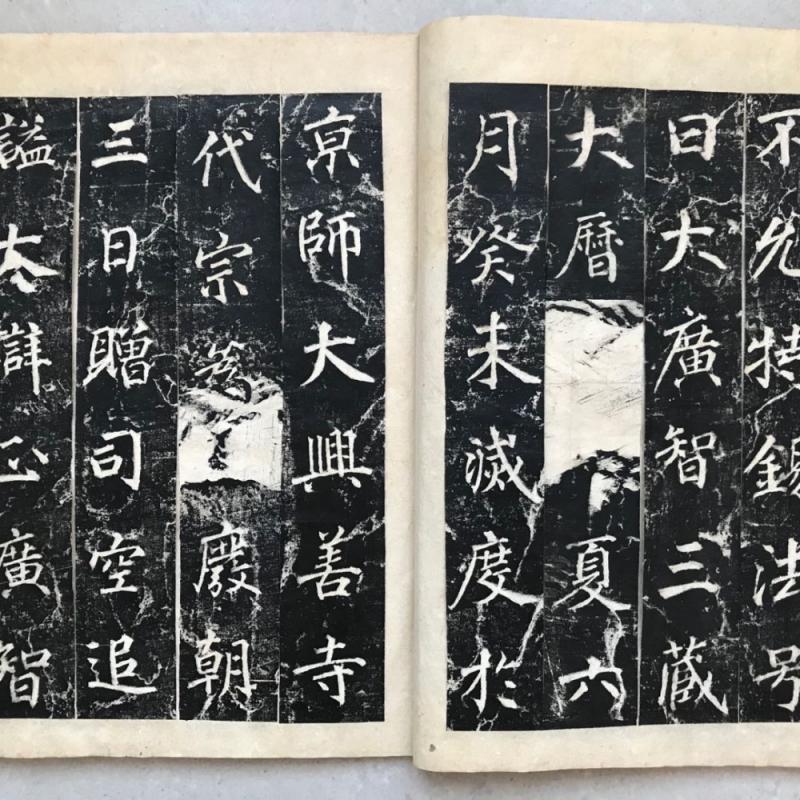 不允特錫法号
曰大廣智三藏
大曆夏六
月癸未滅度於
京師大興善寺
代宗廢朝
三日贈司空追
謚大辯正廣智